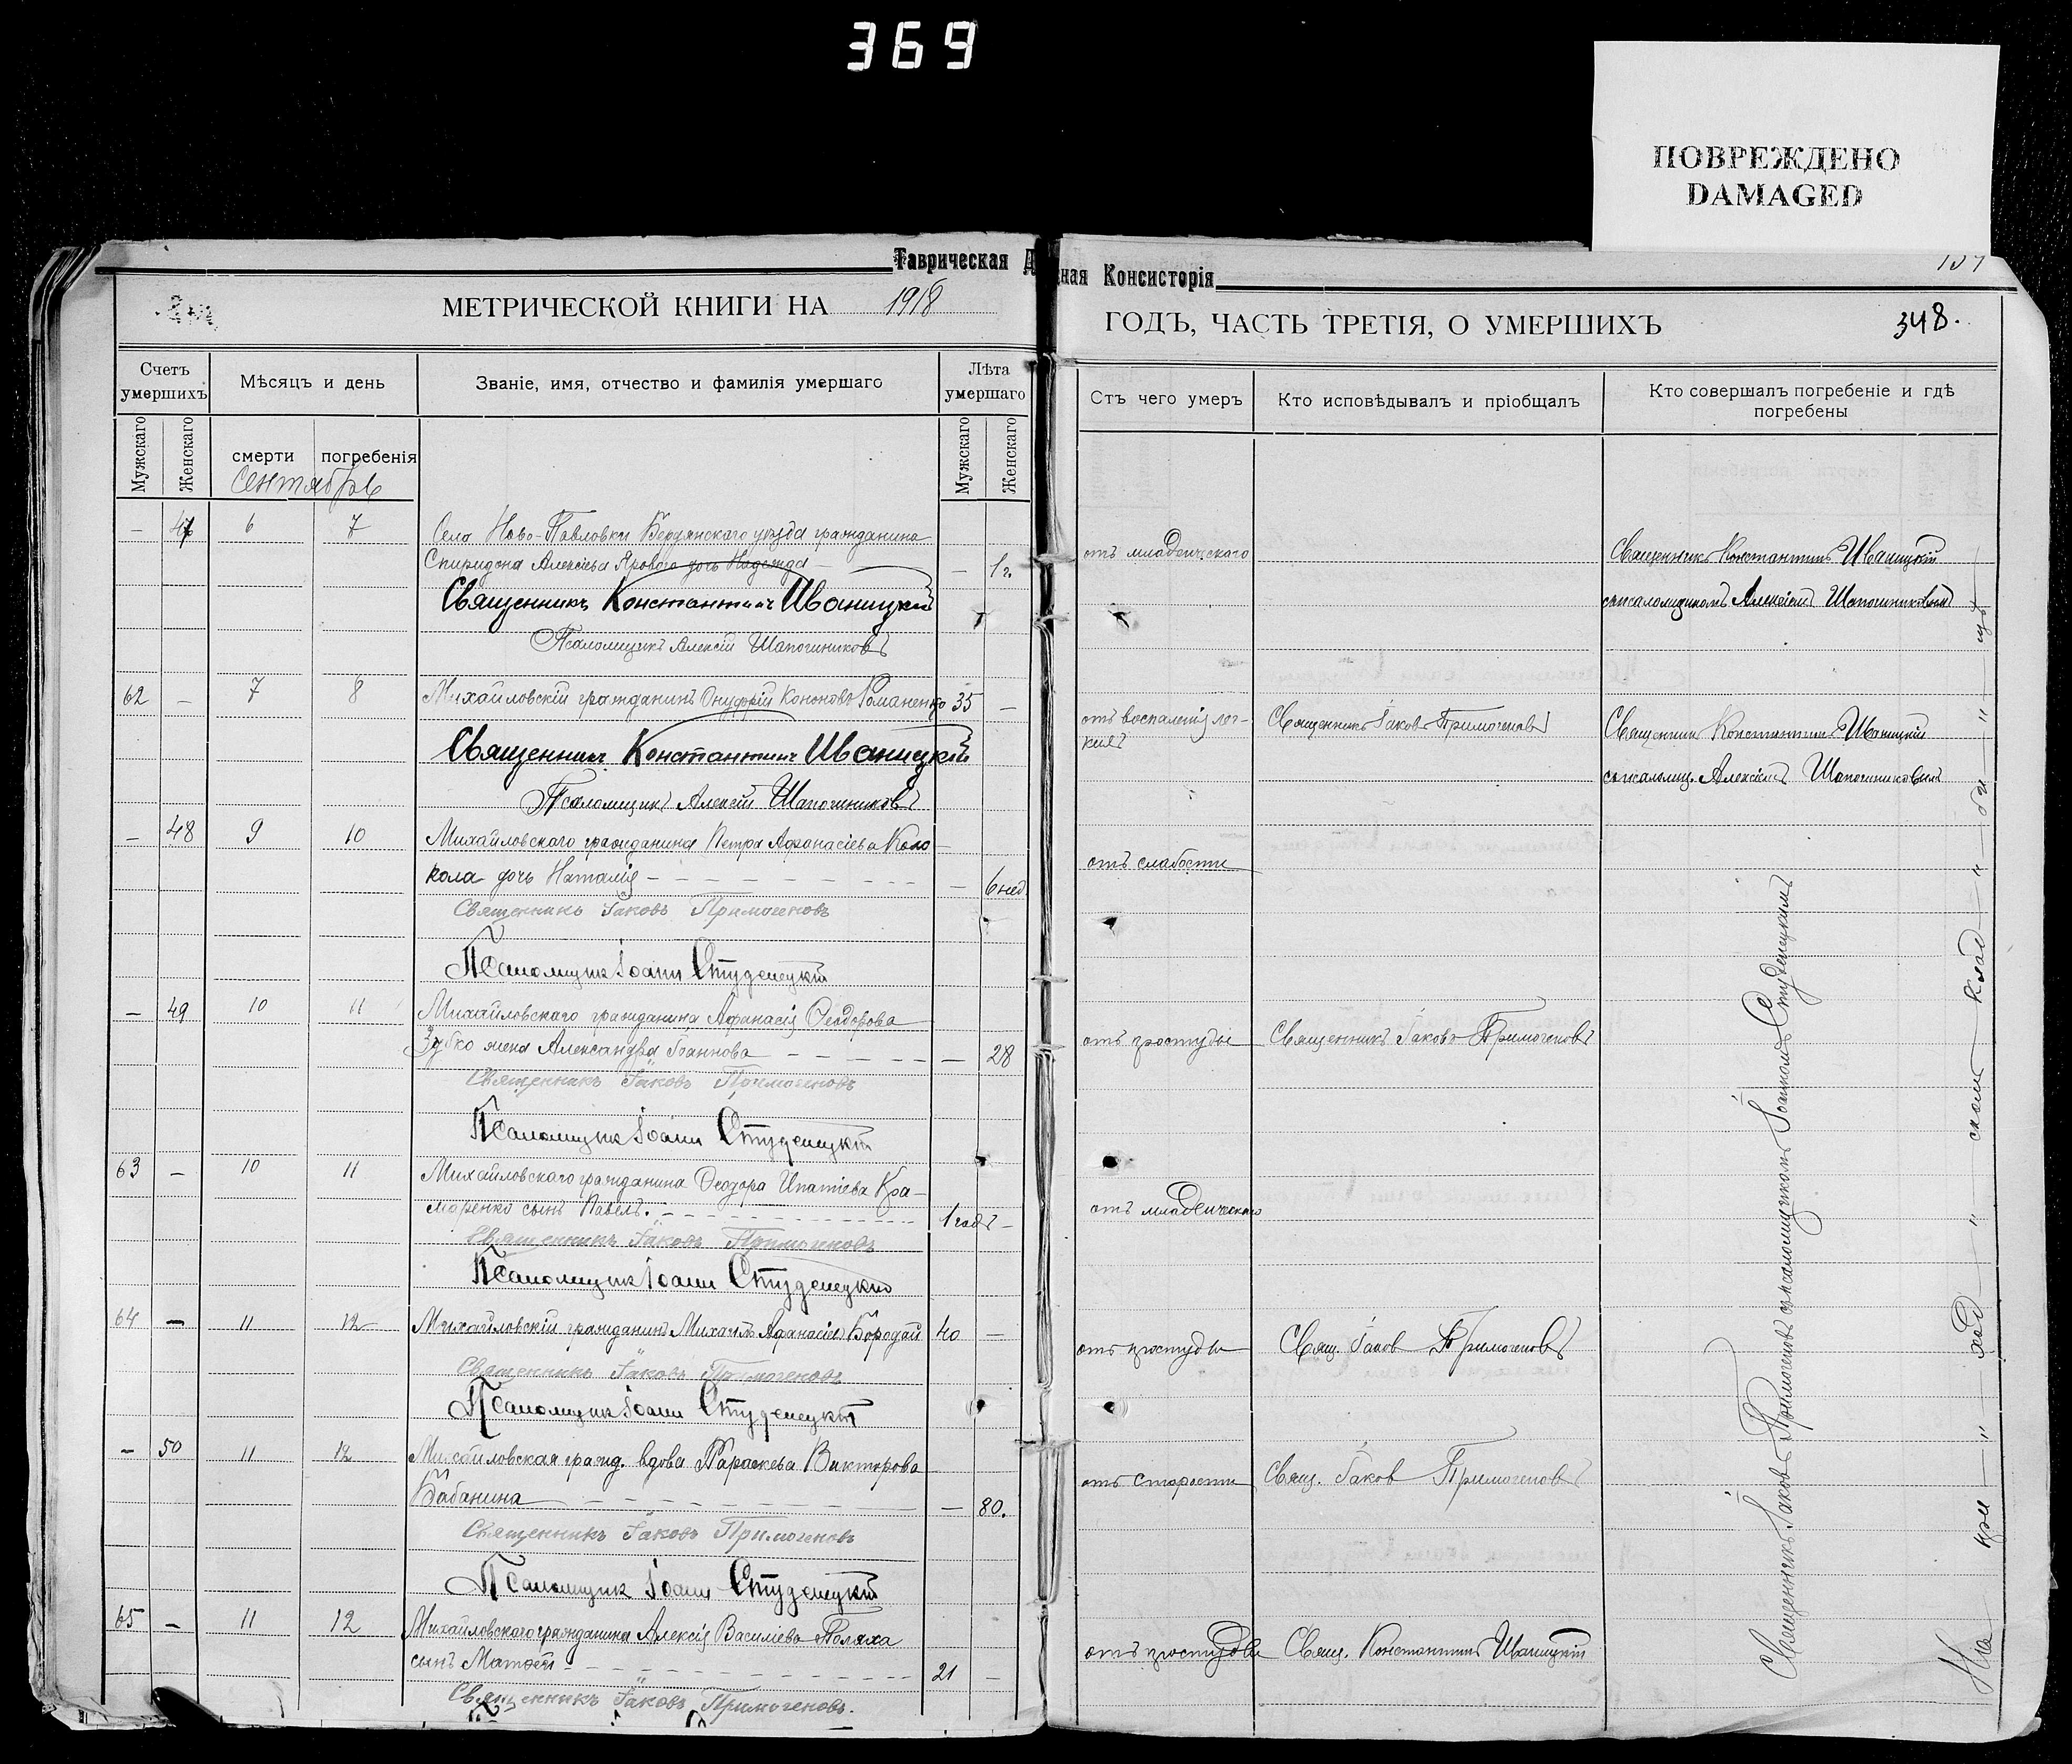 369
ПОВРЕЖДЕНО
DAMAGED
Таврическая Д
ная Консисторія
МЕТРИЧЕСКОЙ КНИГИ НА 1918
ГОДЪ, ЧАСТЬ ТРЕТІЯ, О УМЕРШИХЪ
348.
Счетъ умершихъ
Мѣсяцъ и день
Званіе, имя, отчество и фамилія умершаго
Лѣта умершаго
Мужскаго
Женскаго
смерти
погребенія
Мужскаго
Женскаго
Сентябрь
Отъ чего умеръ
Кто исповѣдывалъ и пріобщалъ
Кто совершалъ погребеніе и гдѣ
погребены
– 47 6 7 Села Ново-Павловки Бердянскаго уѣзда гражданина
Спиридона Алексѣева Ярового дочь Надежда – – 1 г.
Священникъ Константинъ Иваницкій
Псаломщикъ Алексій Шапошниковъ
62 – 7 8 Михайловскій гражданинъ Онуфрій Кононовъ Романенко 35 –
Священникъ Константинъ Иваницкій
Псаломщикъ Алексій Шапошниковъ
– 48 9 10 Михайловского гражданина Петра Афанасіева Коло-
кола дочь Наталія – – 6 нед.
Священникъ Іаковъ Примогеновъ
Псаломщик Іоаннъ Студенецкій
– 49 10 11 Михайловского гражданина Афанасія Ѳеодорова
Зубко жена Александра Іоаннова – – 28
Священникъ Іаковъ Примогеновъ
Псаломщик Іоаннъ Студенецкій
63 – 10 11 Михайловского гражданина Ѳеодора Ипатіева Кра-
маренко сынъ Павелъ. – 1 годъ –
Священникъ Іаковъ Примогеновъ
Псаломщик Іоаннъ Студенецкій
64 – 11 12 Михайловскій гражданинъ Михаилъ Афанасіевъ Бородай 40 –
Священникъ Іаковъ Примогеновъ
Псаломщик Іоаннъ Студенецкій
– 50 11 12 Михайловская гражд. вдова Параскева Викторова
Бабанина – – 80.
Священникъ Іаковъ Примогеновъ
Псаломщик Іоаннъ Студенецкій
65 – 11 12 Михайловского гражданина Алексія Василіева Поляха
сынъ Матѳей – 21 –
Священникъ Іаковъ Примогеновъ.
отъ младенческого
Священникъ Константинъ Иваницкій
съ псаломщикомъ Алексіемъ Шапошниковымъ
отъ воспаленія лег-
кихъ
Священникъ Іаковъ Примогеновъ
Священник Константинъ Иваницкій
съ псаломщ. Алексіемъ Шапошниковымъ
отъ слабости
отъ простуды
Священникъ Іаковъ Примогеновъ
отъ младенческого
отъ простуды
Свящ. Іаков Примогеновъ
отъ старости
Свящ. Іаков Примогеновъ
отъ простуды
Свящ. Константинъ Иваницкій
Священникъ Іаковъ Примогеновъ съ псаломщикомъ Іоанномъ Студенецкимъ
На – при – " – ход – " – скомъ – клад – " – би – " – щѣ